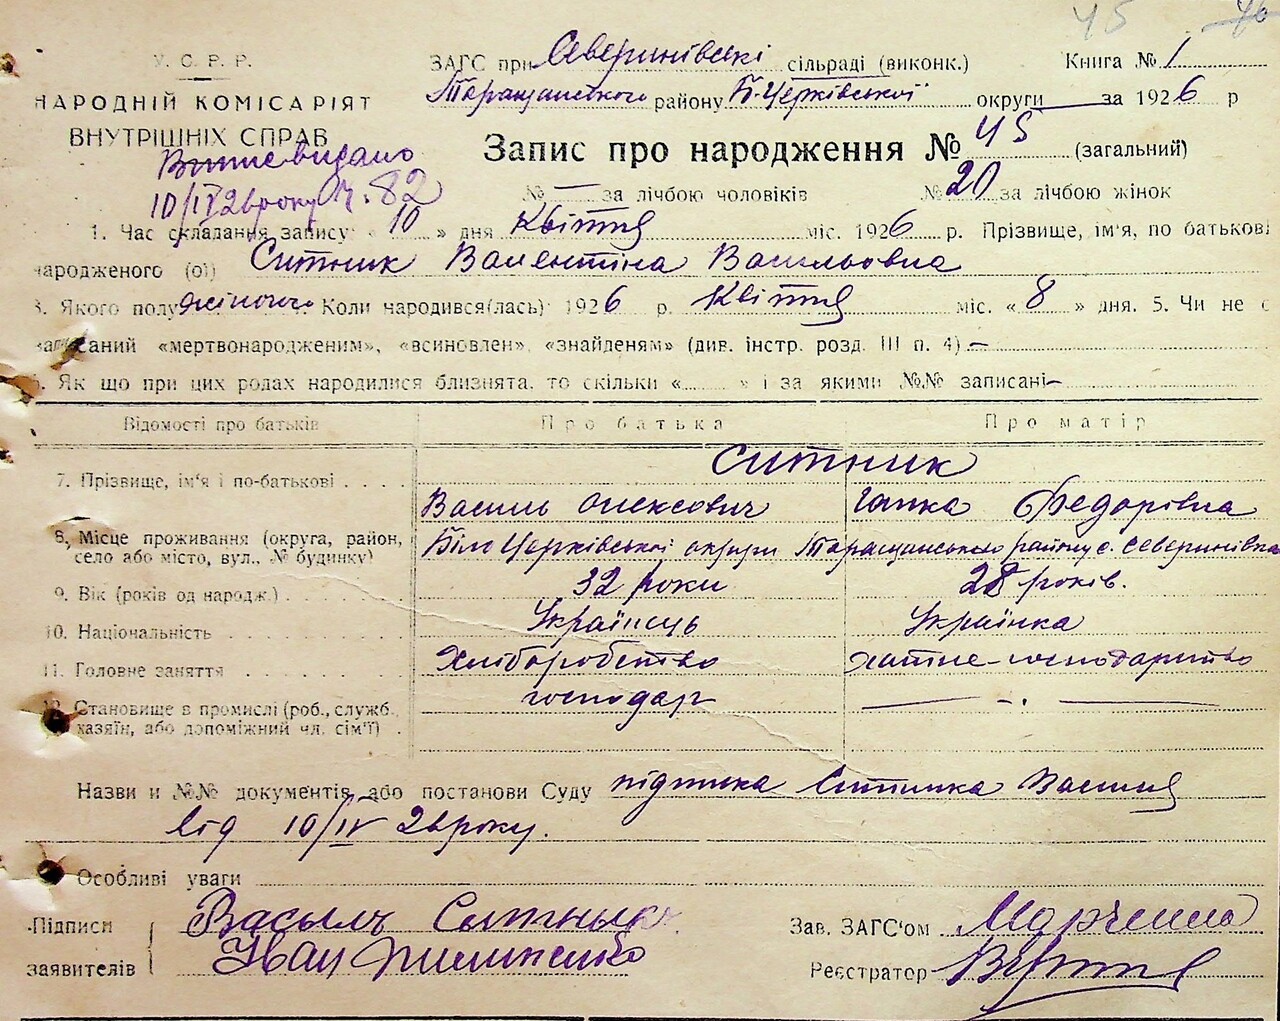 45 46
У. С. Р. Р.
НАРОДНІЙ КОМІСАРІЯТ
ВНУТРІШНІХ СПРАВ
ЗАГС при Северинівські сільраді (виконк.) Книга № 1
Таращанського району Б-Церківської округи за 1926 р
Запис про народження № 45 (загальний)
видано
10/IV 26 року № 82
№ — за лічбою чоловіків № 20 за лічбою жінок
1. Час складання запису: « 10 » дня Квітня міс. 1926 р. Прізвище, ім'я, по батькові
народженого (ої) Ситник Валентіна Васильовна
3. Якого полу жіночого Коли народився(лась): 1926 р. Квітня міс. « 8 » дня. 5. Чи не є
записаний «мертвонародженим», «всиновлен», «знайденям» (див. інстр. розд. III п. 4) —
6. Як що при цих родах народилися близнята, то скільки « » і за якими №№ записані —
Відомості про батьків Про батька Про матір
7. Прізвище, ім'я і по-батькові Ситник
Василь Олексович Гапка Федорівна
8. Місце проживання (округа, район, село або місто, вул., № будинку) Біло Церківської округи Таращанського району с. Северинівка
9. Вік (років од народж.) 32 роки 28 років.
10. Національність Українець Українка
11. Головне заняття Хліборобство хатне-господарство
12. Становище в промислі (роб., служб. хазяїн, або допоміжний чл. сім'ї) господар — . —
Назви и №№ документів або постанови Суду підписка Ситника Василя
від 10/IV 26 року.
Особливі уваги
Підписи заявителів Васыль Сытнык
Іван
Зав. ЗАГС'ом Марченко
Реєстратор